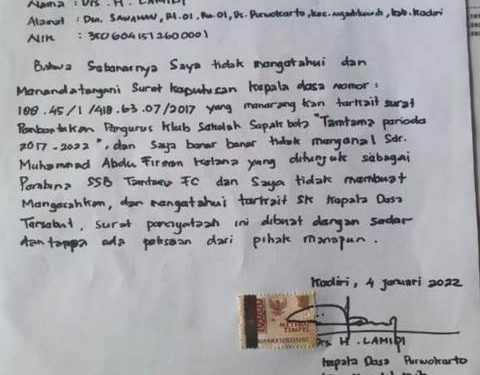 Nama : Drs. H. LAMIDI
Alamat : Dsn. SAWAHAN, Rt.01, Rw.01, Ds. Purwokarto, kec. ngadiluwih, kab. Kediri
NIK : 3506041512600001
Bahwa Sebanarnya Saya tidak mengatahui dan
Menandatangani Surat kaputusan kapala dasa nomor :
188.45/1/418.63.07/2017 yang manarang kan tarkait surat
Pambantukan Pengurus Klub Sakolah Sapak bola "Tamtama parioda
2017-2022", dan Saya banar banar tidak manganal Sdr.
Muhamad Abdu Firman katana yang ditunjuk sabagai
Pambina SSB Tamtama FC dan Saya tidak mambuat
Mangasahkan, dan mangatahui tarkait SK Kapala Dasa
Tarsabut, Surat parnyataan ini dibuat dangan sadar
dan tanpa ada paksaan dari pihak manapun.
Kadiri, 4 januari 2022
METERAI
TEMPEL
10000
Drs. H. LAMIDI
kapala Dasa Purwokarto